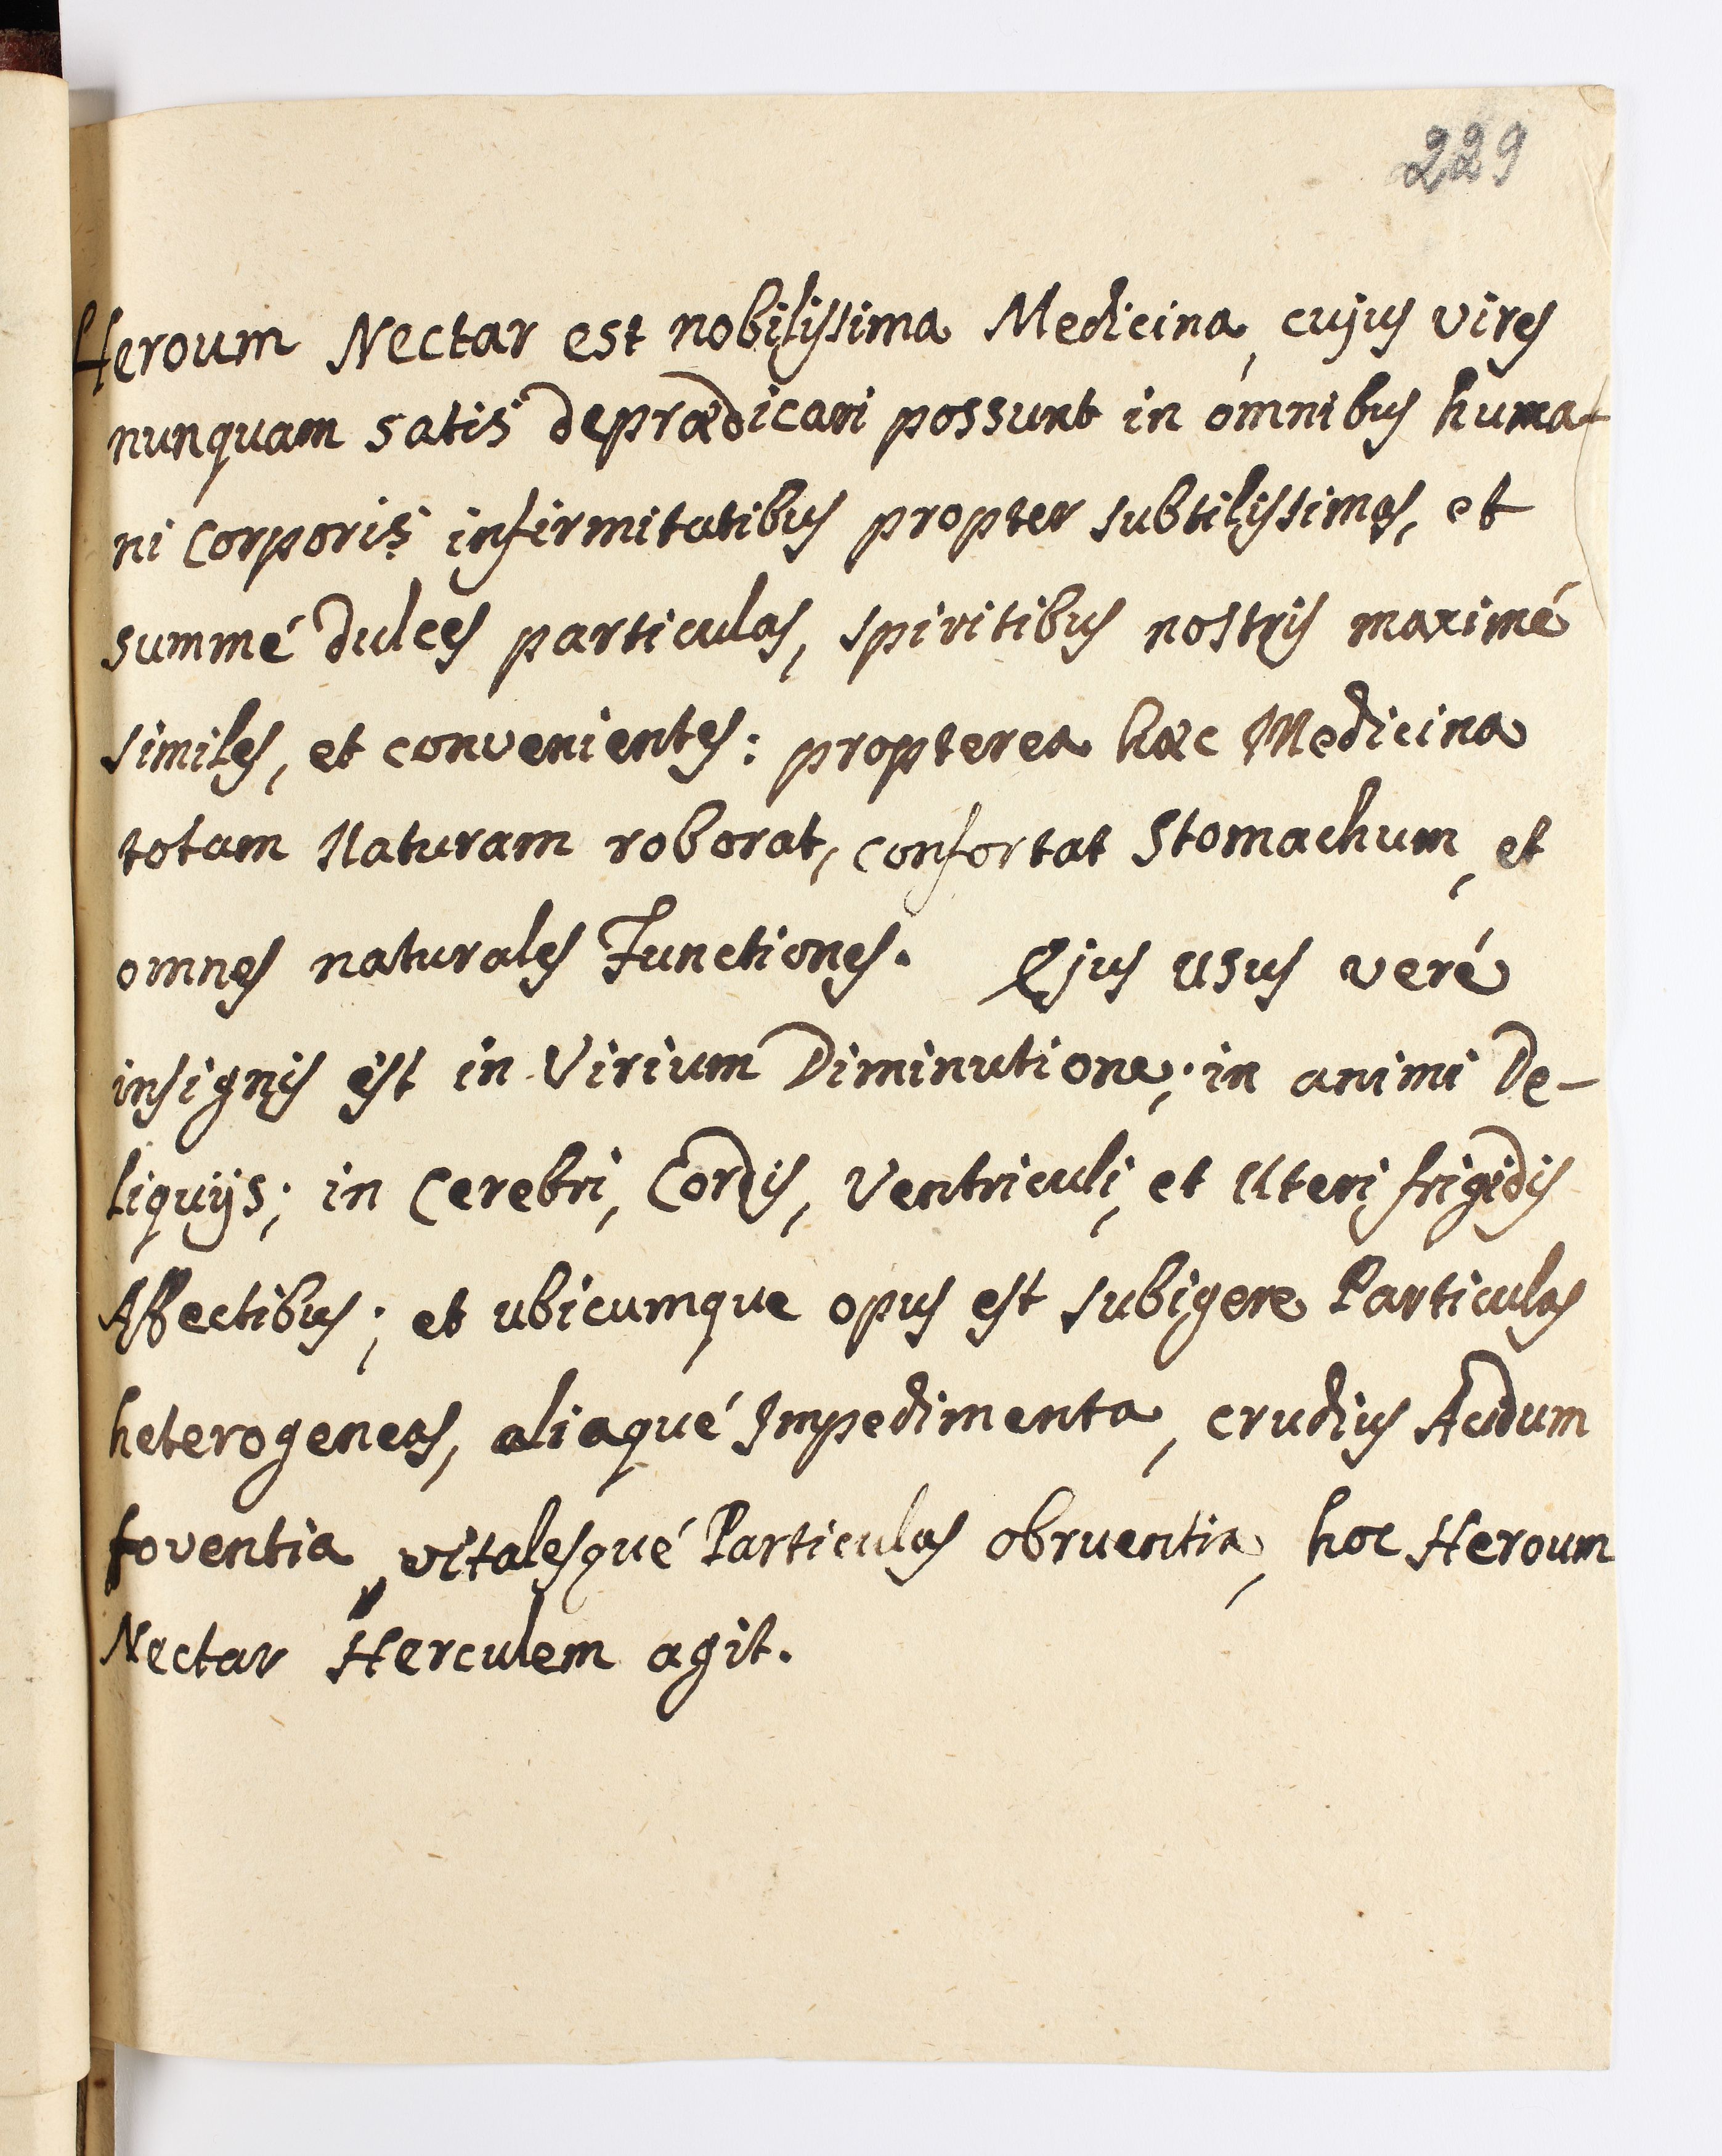 229
Heroum Nectar est nobilissima Medicina, cujus vires
nunquam satis depraedicari possunt in omnibus huma-
ni corporis infirmitatibus propter subtilissimas, et
summé dulces particulas, spiritibus nostris maximé
similes, et convenientes: propterea haec Medicina
totam Naturam roborat, confortat Stomachum, et
omnes naturales Functiones. Ejus usus veré
insignis est in Virium Diminutione; in animi De-
liquijs; in Cerebri, Cordis, Ventriculi, et Uteri frigidis
Affectibus; et ubicumque opus est subigere Particulas
heterogeneas, aliaqué Impedimenta, crudius Acidum
foventia, vitalesqué Particulas obruentia, hoc Heroum
Nectar Herculem agit.